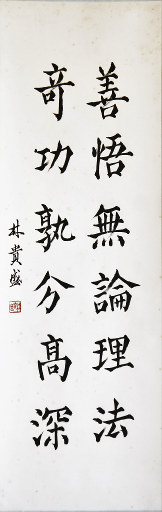 善悟無論理法
奇功孰分高深
林貴盛